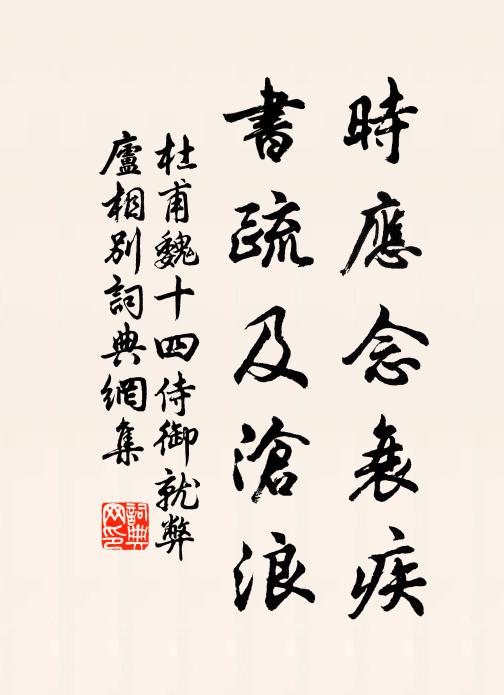 時應念衰疾
書疏及滄浪
杜甫魏十四侍御就弊
廬相別詞典網集
詞典网印